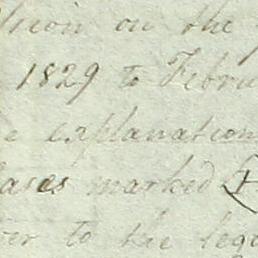 on the
1829 to Febru
e explanation
ases marked
er to the lega